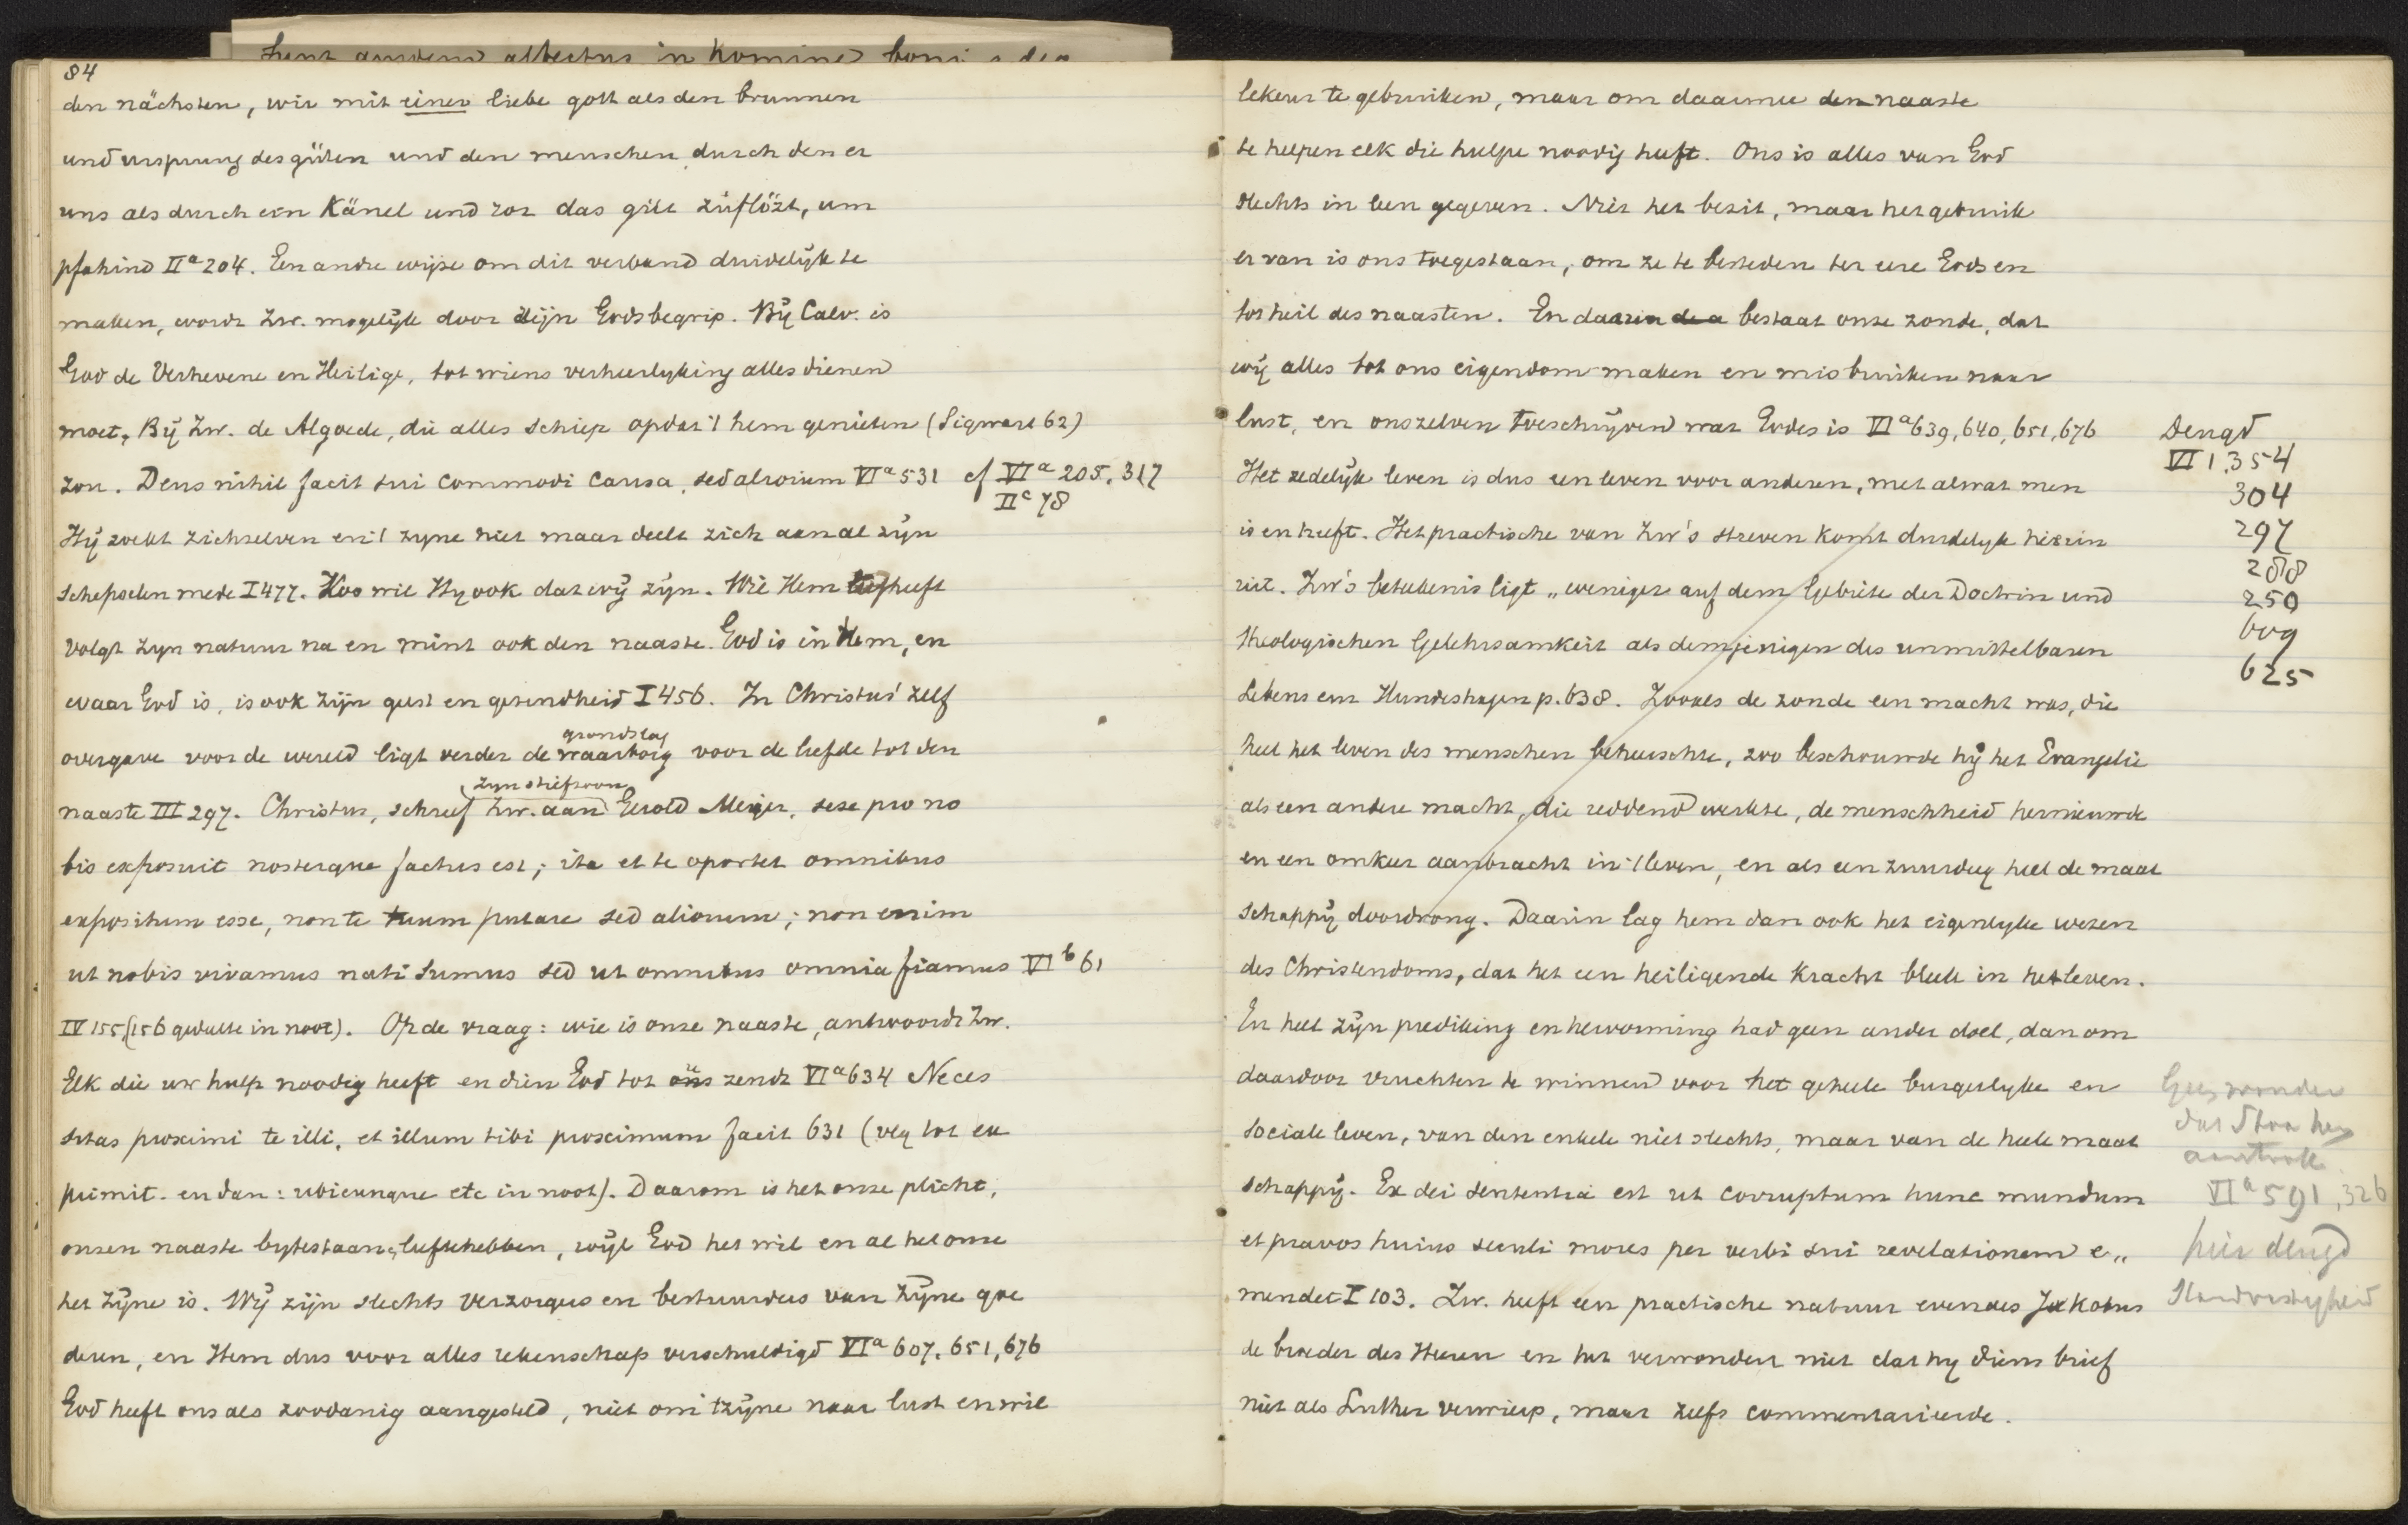 84
den nächsten, wir mit einer liebe gott als den brunnen
und ursprung des güten und den menschen durch den er
uns als durch ein Känel und ror das gůt zůflőzt, um
pfahind IIa 204. Een andre wijze om dit verband duidelijk te
maken, wordt Zw. mogelijk door zijn Godsbegrip. Bij Calv. is
God de Verhevene en Heilige, tot wiens verheerlyking alles dienen
moet, Bij Zw. de Algoede, die alles schiep opdat 't hem genieten (Sigwart 62)
zou. Deus nihil facit sui commodi causa, sed aliorum VIa 531 cf VIa 205, 317
IIc 78
Hij zoekt zichzelven en 't zyne niet maar deelt zich aan al zijn
schepselen mede I 477. Zoo wil Hy ook dat wij zijn. Wie Hem liefheeft
volgt zyn natuur na en mint ook den naaste. God is in hem, en
waar God is, is ook zijn geest en gezindheid I 456. In Christus' zelf
grondslag
overgave voor de wereld ligt verder de waarborg voor de liefde tot den
(zyn stiefzoon
naaste III 297. Christus, schreef Zw. aan Gerold Meijer, sese pro no
bis exposuit nosterque factus est; ita et te oportet omnibus
expositum esse, non te tuum putare sed aliorum; non enim
ut nobis vivamus nati sumus sed ut omnibus omnia fiamus VIb 61
IV 155, (156 gedulte in noot). Op de vraag: wie is onze naaste, antwoordt Zw.
Elk die uw hulp noodig heeft en dien God tot ons zendt VIa 634 Neces
sitas proximi te illi, et illum tibi proximum facit 631 (vlg tot ex
primit. en dan: ubicunque etc in noot). Daarom is het onze plicht,
onzen naaste bytestaan, lieftehebben, wijl God het wil en al het onze
het Zijne is. Wij zijn slechts verzorgers en bestuurders van Zijne goe
deren, en Hem dus voor alles rekenschap verschuldigd VIa 607, 651, 676
God heeft ons als zoodanig aangesteld, niet om 't zijne naar lust en wil
lekeur te gebruiken, maar om daarmee den naaste
te helpen elk die hulpe noodig heeft. Ons is alles van God
slechts in leen gegeven. Niet het bezit, maar het gebruik
er van is ons toegestaan, om ze te besteden ter eere Gods en
tot heil des naasten. En daarin bestaat onze zonde, dat
wij alles tot ons eigendom maken en misbruiken naar
lust, en onszelven toeschrijven wat Godes is VIa 639, 640, 651, 676
Deugd
VI 1, 354
304
297
288
250
609
625
Het zedelijk leven is dus een leven voor anderen, met al wat men
is en heeft. Het practische van Zw's streven komt duidelyk hierin
uit. Zw's beteekenis ligt „weniger auf dem Gebiete der Doctrin und
theologischen Gelehrsamkeit als demjenigen des unmittelbaren
Lebens em Hundeshagen p. 638. Zooals de zonde een macht was, die
heel het leven des menschen beheerschte, zoo beschouwde hij het Evangelie
als een andere macht, die reddend werkte, de menschheid hernieuwde
en een omkeer aanbracht in 't leven, en als een zuurdeeg heel de maat
schappij doordrong. Daarin lag hem dan ook het eigenlyke wezen
des Christendoms, dat het een heiligende kracht bleek in het leven.
En heel zijn prediking en hervorming had geen ander doel, dan om
daardoor vruchten te winnen voor het geheele burgerlyke en
sociale leven, van den enkele niet slechts, maar van de heele maat
schappij. Ea dei sententia est ut corruptum hunc mundum
et pravos huius seculi mores per verbi sui revelationem e„
mendet I 103. Zw. heeft een practische natuur evenals Jakobus
de broeder des Heeren en het verwondert niet dat hy diens brief
niet als Luther verwierp, maar zelfs commentarieerde.
Geen wonder
dat Stoa hem
aantrok.
VIa 591, 326
hier deugd
Standvastigheid